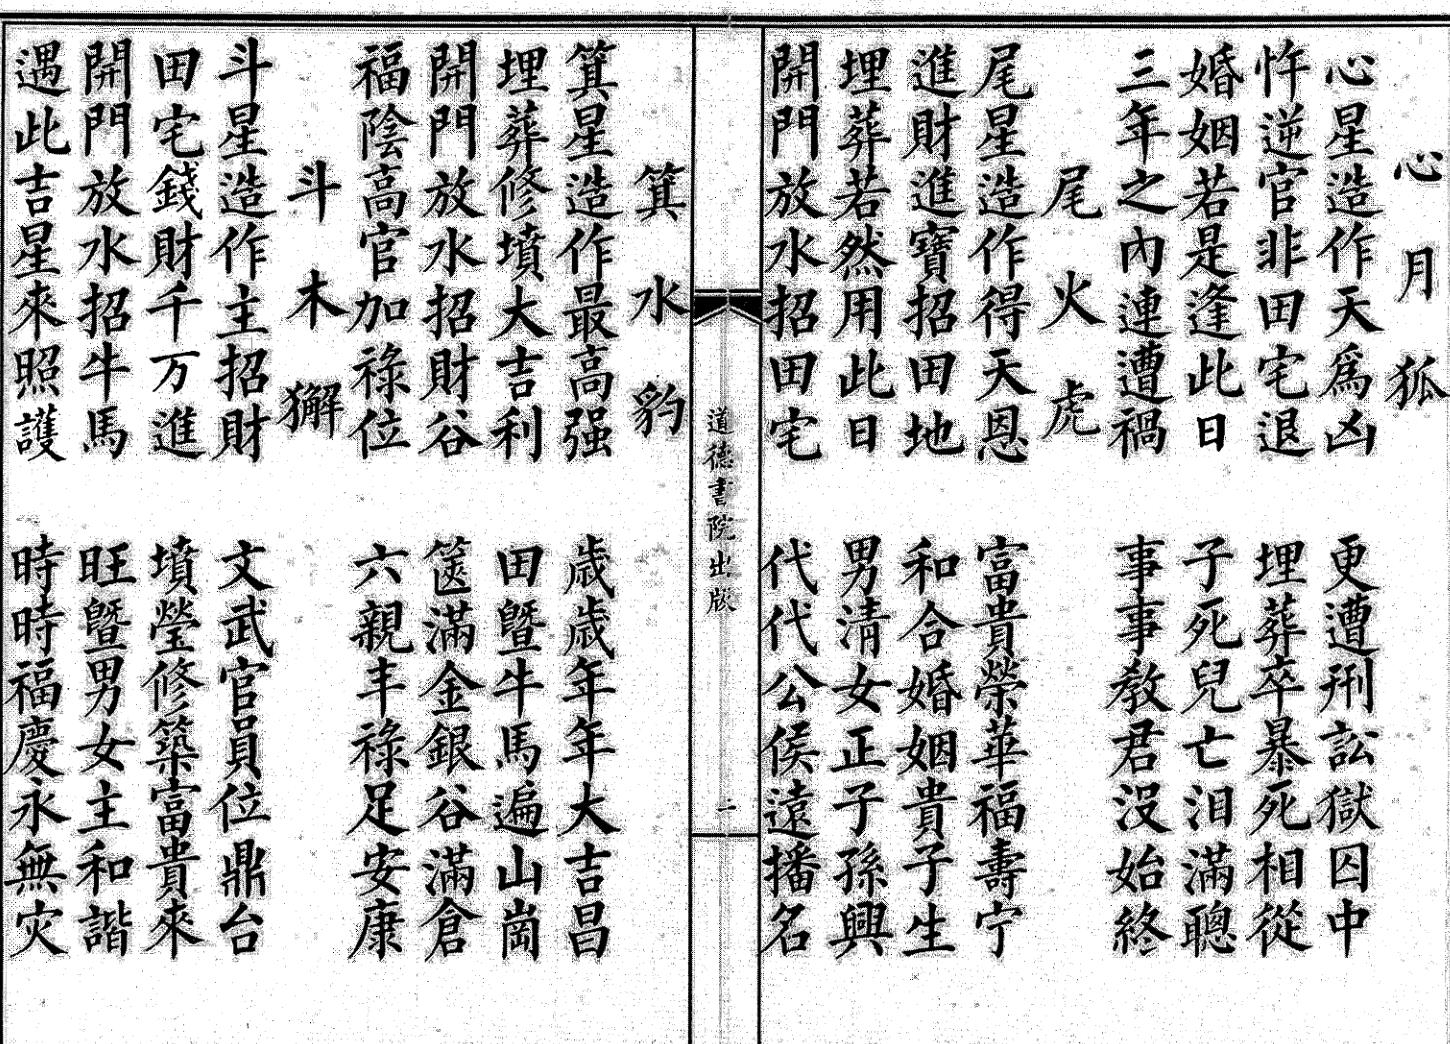 心月狐
心星造作天爲凶 更遭刑訟獄囚中
忤逆官非田宅退 埋葬卒暴死相從
婚姻若是逢此日 子死兒亡泪滿聰
三年之內連遭禍 事事教君没始終
尾火虎
尾星造作得天恩 富貴榮華福壽宁
進財進寶招田地 和合婚姻貴子生
埋葬若然用此日 男清女正子孫興
開門放水招田宅 代代公侯遠播名
道德書院出版
一
箕水豹
箕星造作最高强 歲歲年年大吉昌
埋葬修墳大吉利 田曁牛馬遍山崗
開門放水招財谷 篋滿金銀谷滿倉
福陰高官加祿位 六親丰祿足安康
斗木獬
斗星造作主招財 文武官員位鼎台
田宅錢財千万進 墳瑩修築富貴來
開門放水招牛馬 旺曁男女主和諧
遇此吉星來照護 時時福慶永無灾